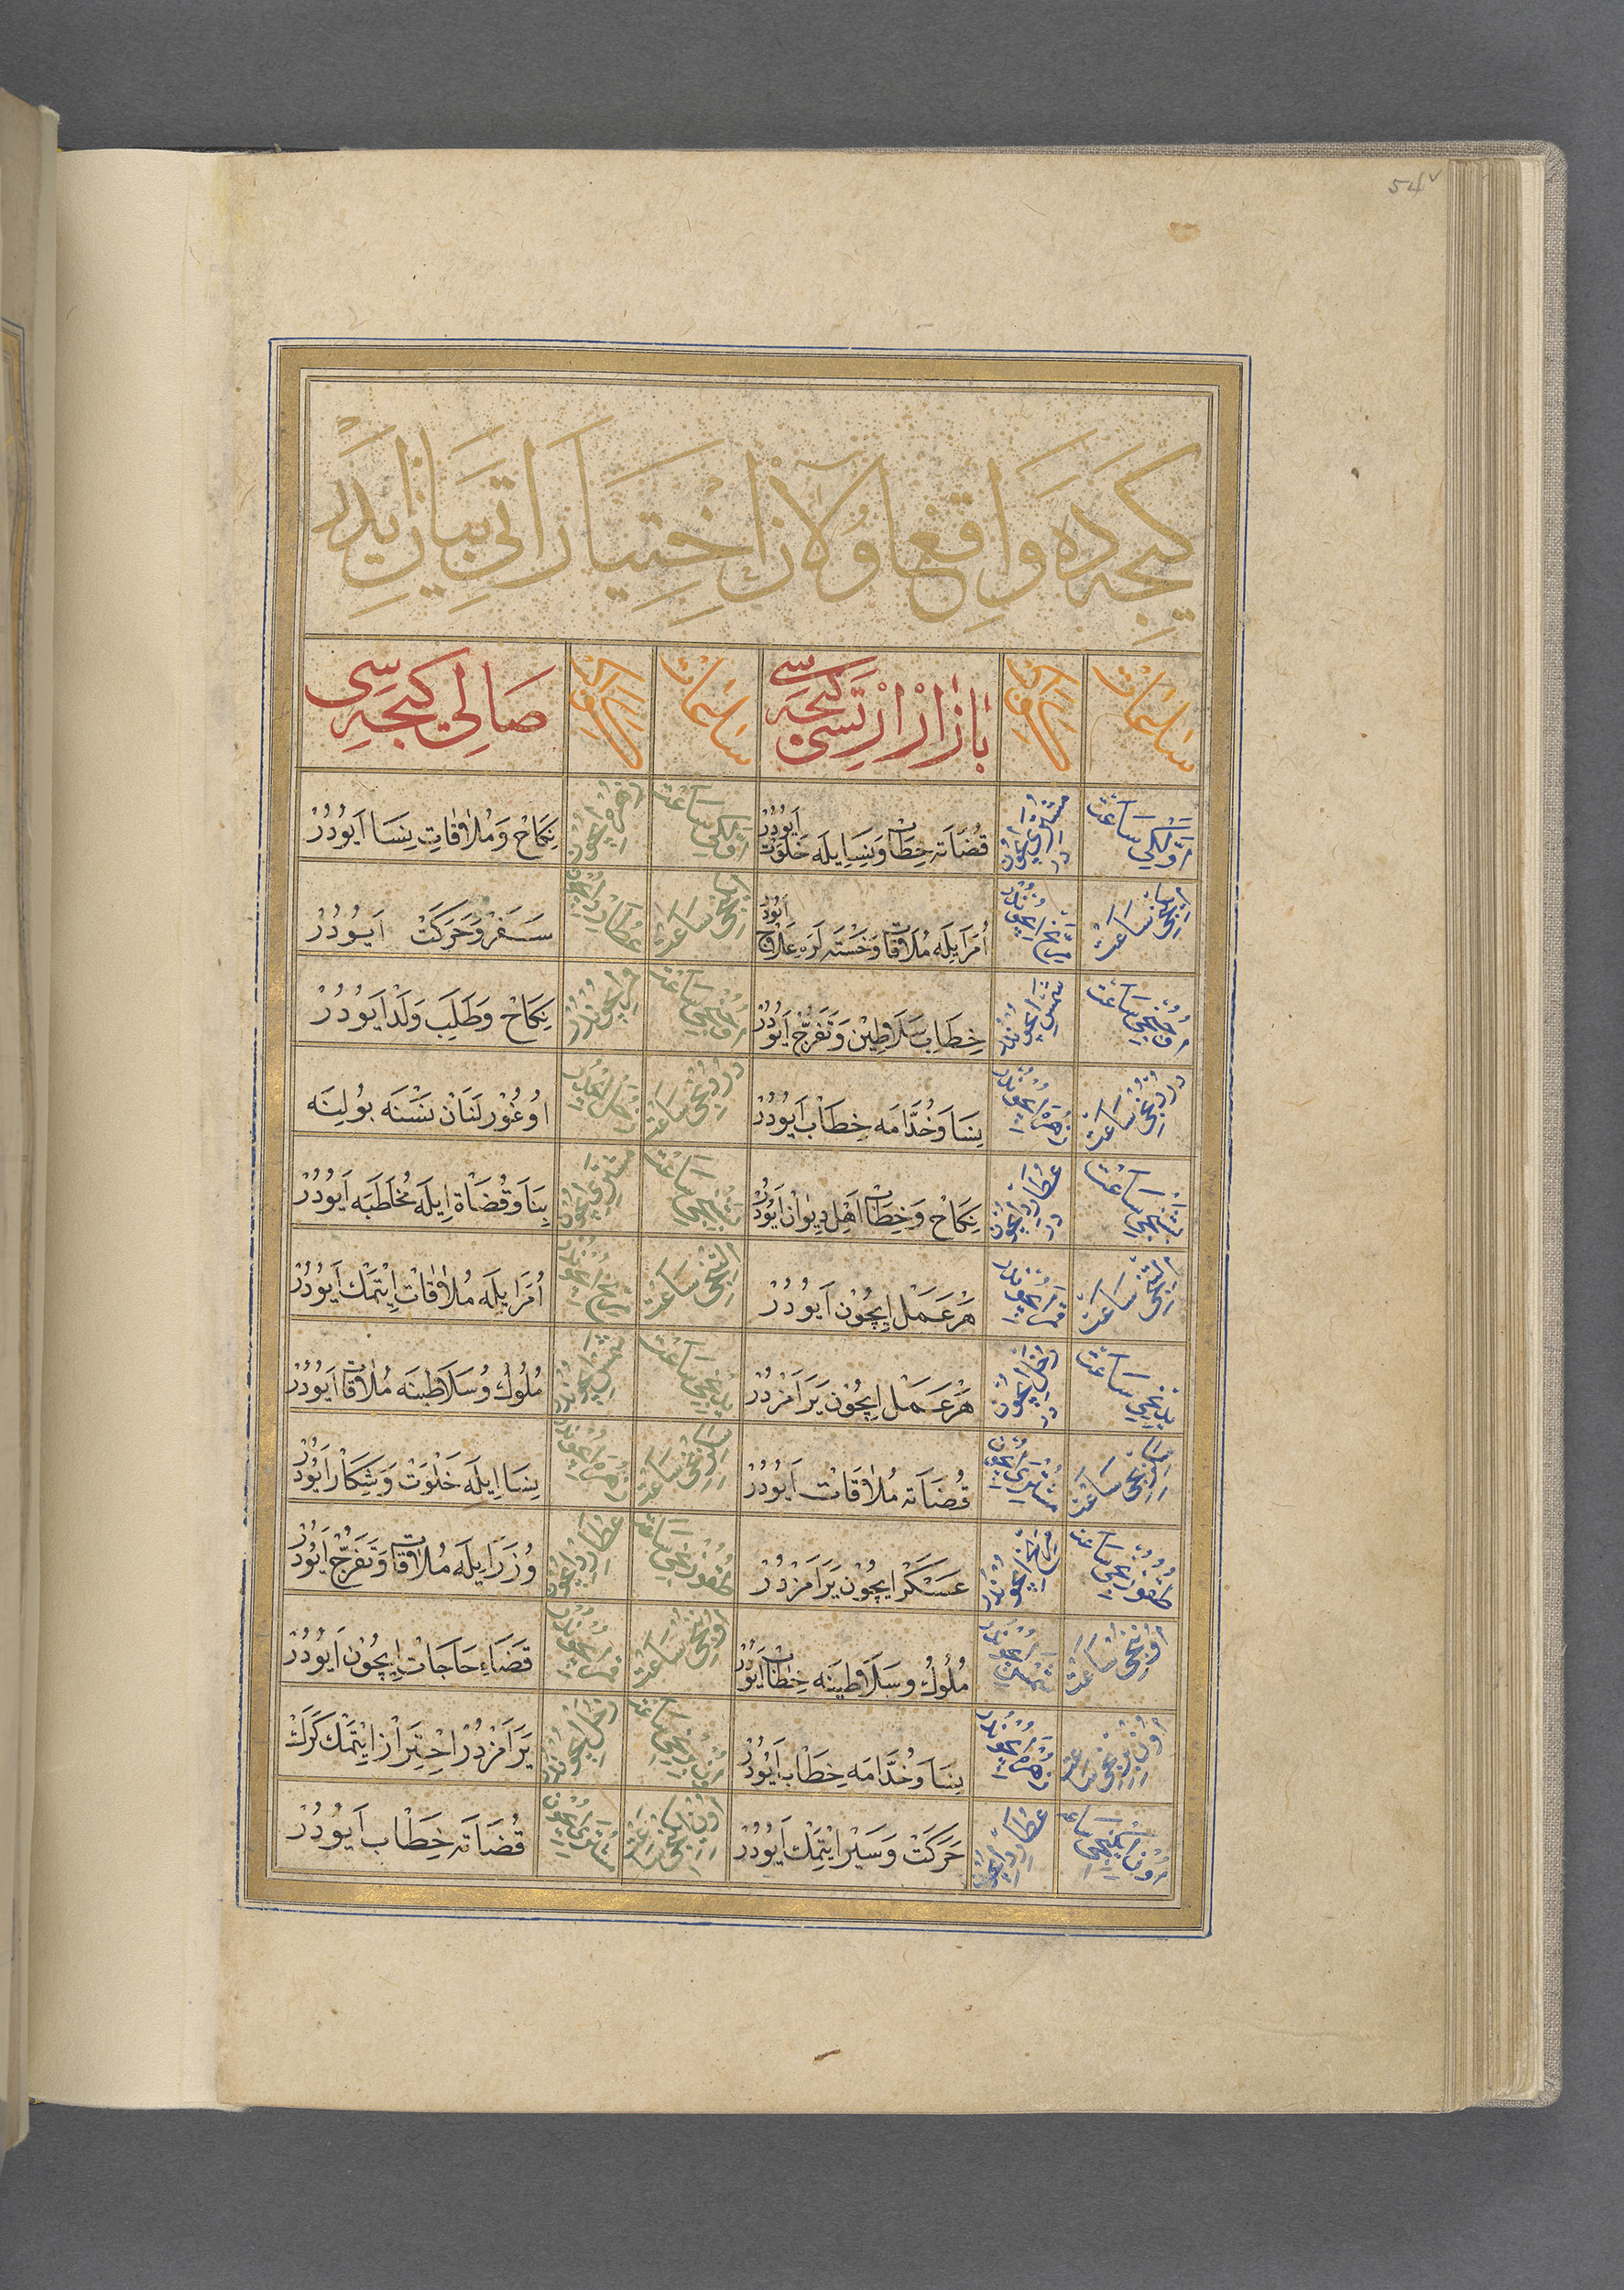 54v
كيجه ده واقع اولان اختياراتي بيان ايدر
ساعات
بازار ارتسي كيجه سي
ساعات
صالي كيجه سي
اولكي ساعت
مشتري ايچون در
قضاته خطاب و نسا ايله خلوت ايودر
اولكي ساعت
زهره ايچون
نكاح و ملاقات نسا ايودر
ايكنجي ساعت
مريخ ايچوندر
امرا يله ملاقات و خسته لره علاج ايودر
ايكنجي ساعت
عطارد ايچون
سفر و حركت ايودر
اوچنجي ساعت
شمس ايچوندر
خطاب سلاطين و تفرج ايودر
اوچنجي ساعت
قمر ايچوندر
نكاح و طلب ولد ايودر
دردنجي ساعت
زهره ايچوندر
نسا و خدامه خطاب ايودر
دردنجي ساعت
زحل ايچوندر
اوغورلنان نسنه بولينه
بشنجي ساعت
عطارد ايچون در
نكاح و خطاب اهل ديوان ايودر
بشنجي ساعت
مشتري ايچون
بنا و قضاة ايله مخاطبه ايودر
التنجي ساعت
قمر ايچوندر
هر عمل ايچون ايودر
التنجي ساعت
مريخ ايچوندر
امرا يله ملاقات ايتمك ايودر
يدنجي ساعت
زحل ايچون در
هر عمل ايچون يرامزدر
يدنجي ساعت
شمس ايچوندر
ملوك و سلاطينه ملاقات ايودر
سكزنجي ساعت
مشتري ايچون
قضاته ملاقات ايودر
سكزنجي ساعت
زهره ايچوندر
نسا ايله خلوت و شكار ايودر
طقوزنجي ساعت
مريخ ايچوندر
عسكر ايچون يرامزدر
طقوزنجي ساعت
عطارد ايچون
وزرا يله ملاقات و تفرج ايودر
اوننجي ساعت
شمس ايچوندر
ملوك و سلاطينه خطاب ايودر
اوننجي ساعت
قمر ايچوندر
قضاء حاجات ايچون ايودر
اون برنجي ساعت
زهره ايچوندر
نسا و خدامه خطاب ايودر
اون برنجي ساعت
زحل ايچوندر
يرامزدر احتراز ايتمك كرك
اون ايكنجي ساعت
عطارد ايچون
حركت و سير ايتمك ايودر
اون ايكنجي ساعت
مشتري ايچون
قضاته خطاب ايودر